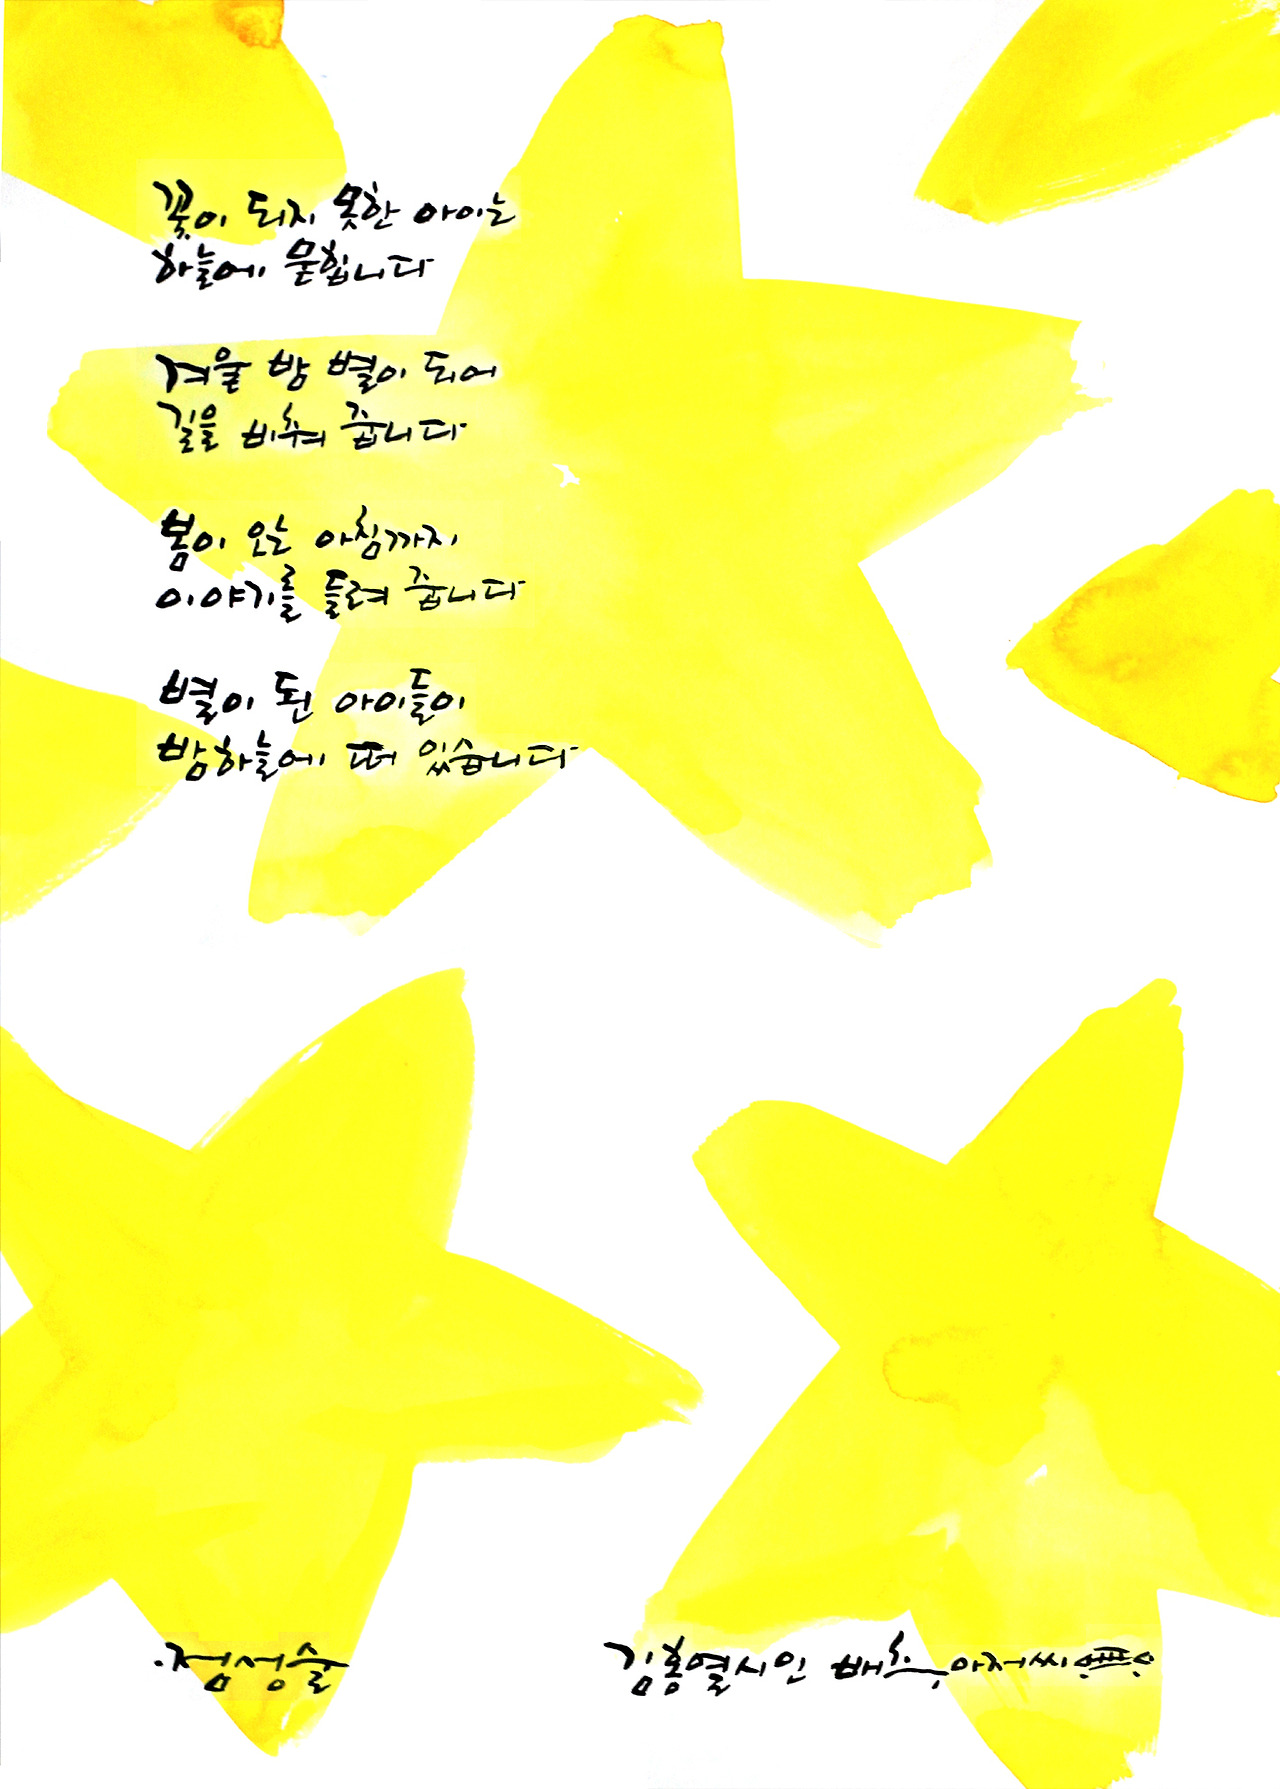 꽃이 되지 못한 아이는
하늘에 묻힙니다
겨울 밤 별이 되어
길을 비춰 줍니다
봄이 오는 아침까지
이야기를 들려 줍니다
별이 된 아이들이
밤하늘에 떠 있습니다
김홍열시인 배추아저씨